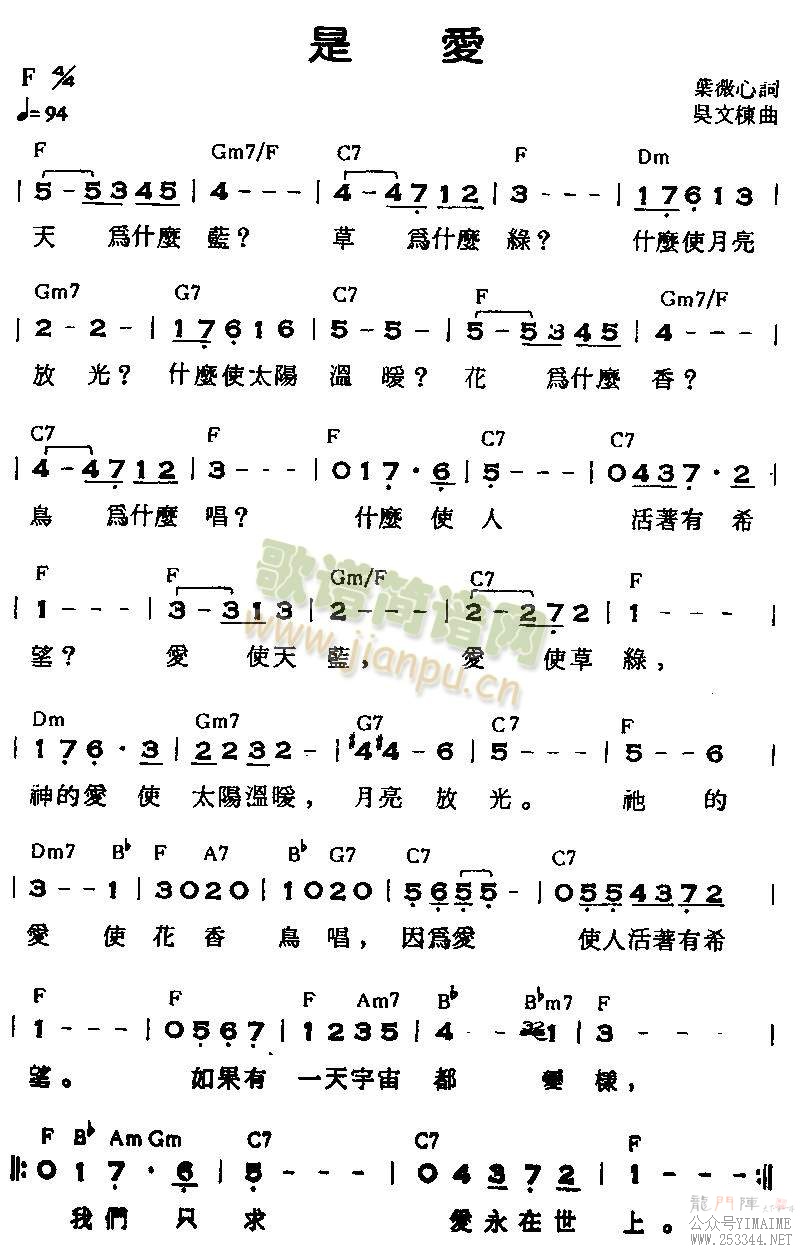 是 愛
F 4/4
葉薇心詞
♩=94
吳文棟曲
F Gm7/F C7 F Dm
| 5 - 5 3 4 5 | 4 - - - | 4 - 4 7 1 2 | 3 - - - | 1 7 6 1 3 |
天 爲什麼藍? 草 爲什麼綠? 什麼使月亮
Gm7 G7 C7 F Gm7/F
| 2 - 2 - | 1 7 6 1 6 | 5 - 5 - | 5 - 5 3 4 5 | 4 - - - |
放光? 什麼使太陽溫暖? 花 爲什麼香?
C7 F F C7 C7
| 4 - 4 7 1 2 | 3 - - - | 0 1 7 · 6 | 5 - - - | 0 4 3 7 · 2 |
鳥 爲什麼唱? 什麼使人 活著有希
F F Gm/F C7 F
| 1 - - - | 3 - 3 1 3 | 2 - - - | 2 - 2 7 2 | 1 - - - |
望? 愛 使天藍, 愛 使草綠,
歌谱简谱网
www.jianpu.cn
Dm Gm7 G7 C7 F
| 1 7 6 · 3 | 2 2 3 2 - | #4 #4 - 6 | 5 - - - | 5 - - 6 |
神的愛使 太陽溫暖, 月亮放光。 祂的
Dm7 B♭ F A7 B♭ G7 C7 C7
| 3 - - 1 | 3 0 2 0 | 1 0 2 0 | 5 6 5 5 - | 0 5 5 4 3 7 2 |
愛 使花香鳥唱, 因爲愛 使人活著有希
F F F Am7 B♭ B♭m7 F
| 1 - - - | 0 5 6 7 | 1 2 3 5 | 4 - 32 1 | 3 - - - |
望。 如果有 一天宇宙都 變樣,
F B♭ Am Gm C7 C7 F
‖: 0 1 7 · 6 | 5 - - - | 0 4 3 7 2 | 1 - - - :‖
我們只求 愛永在世上。
龍門陣
公众号YIMAIME
www.253344.NET